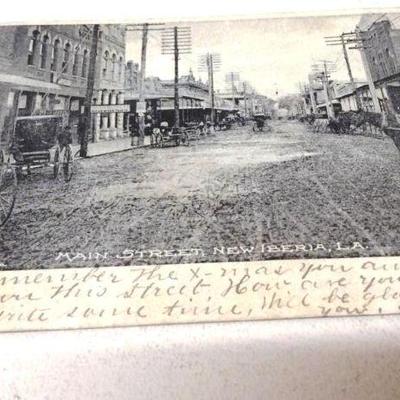 MAIN STREET, NEW IBERIA, LA.
member the X-mas you an
on this street. How are you
rite some time, Will be gla
you.